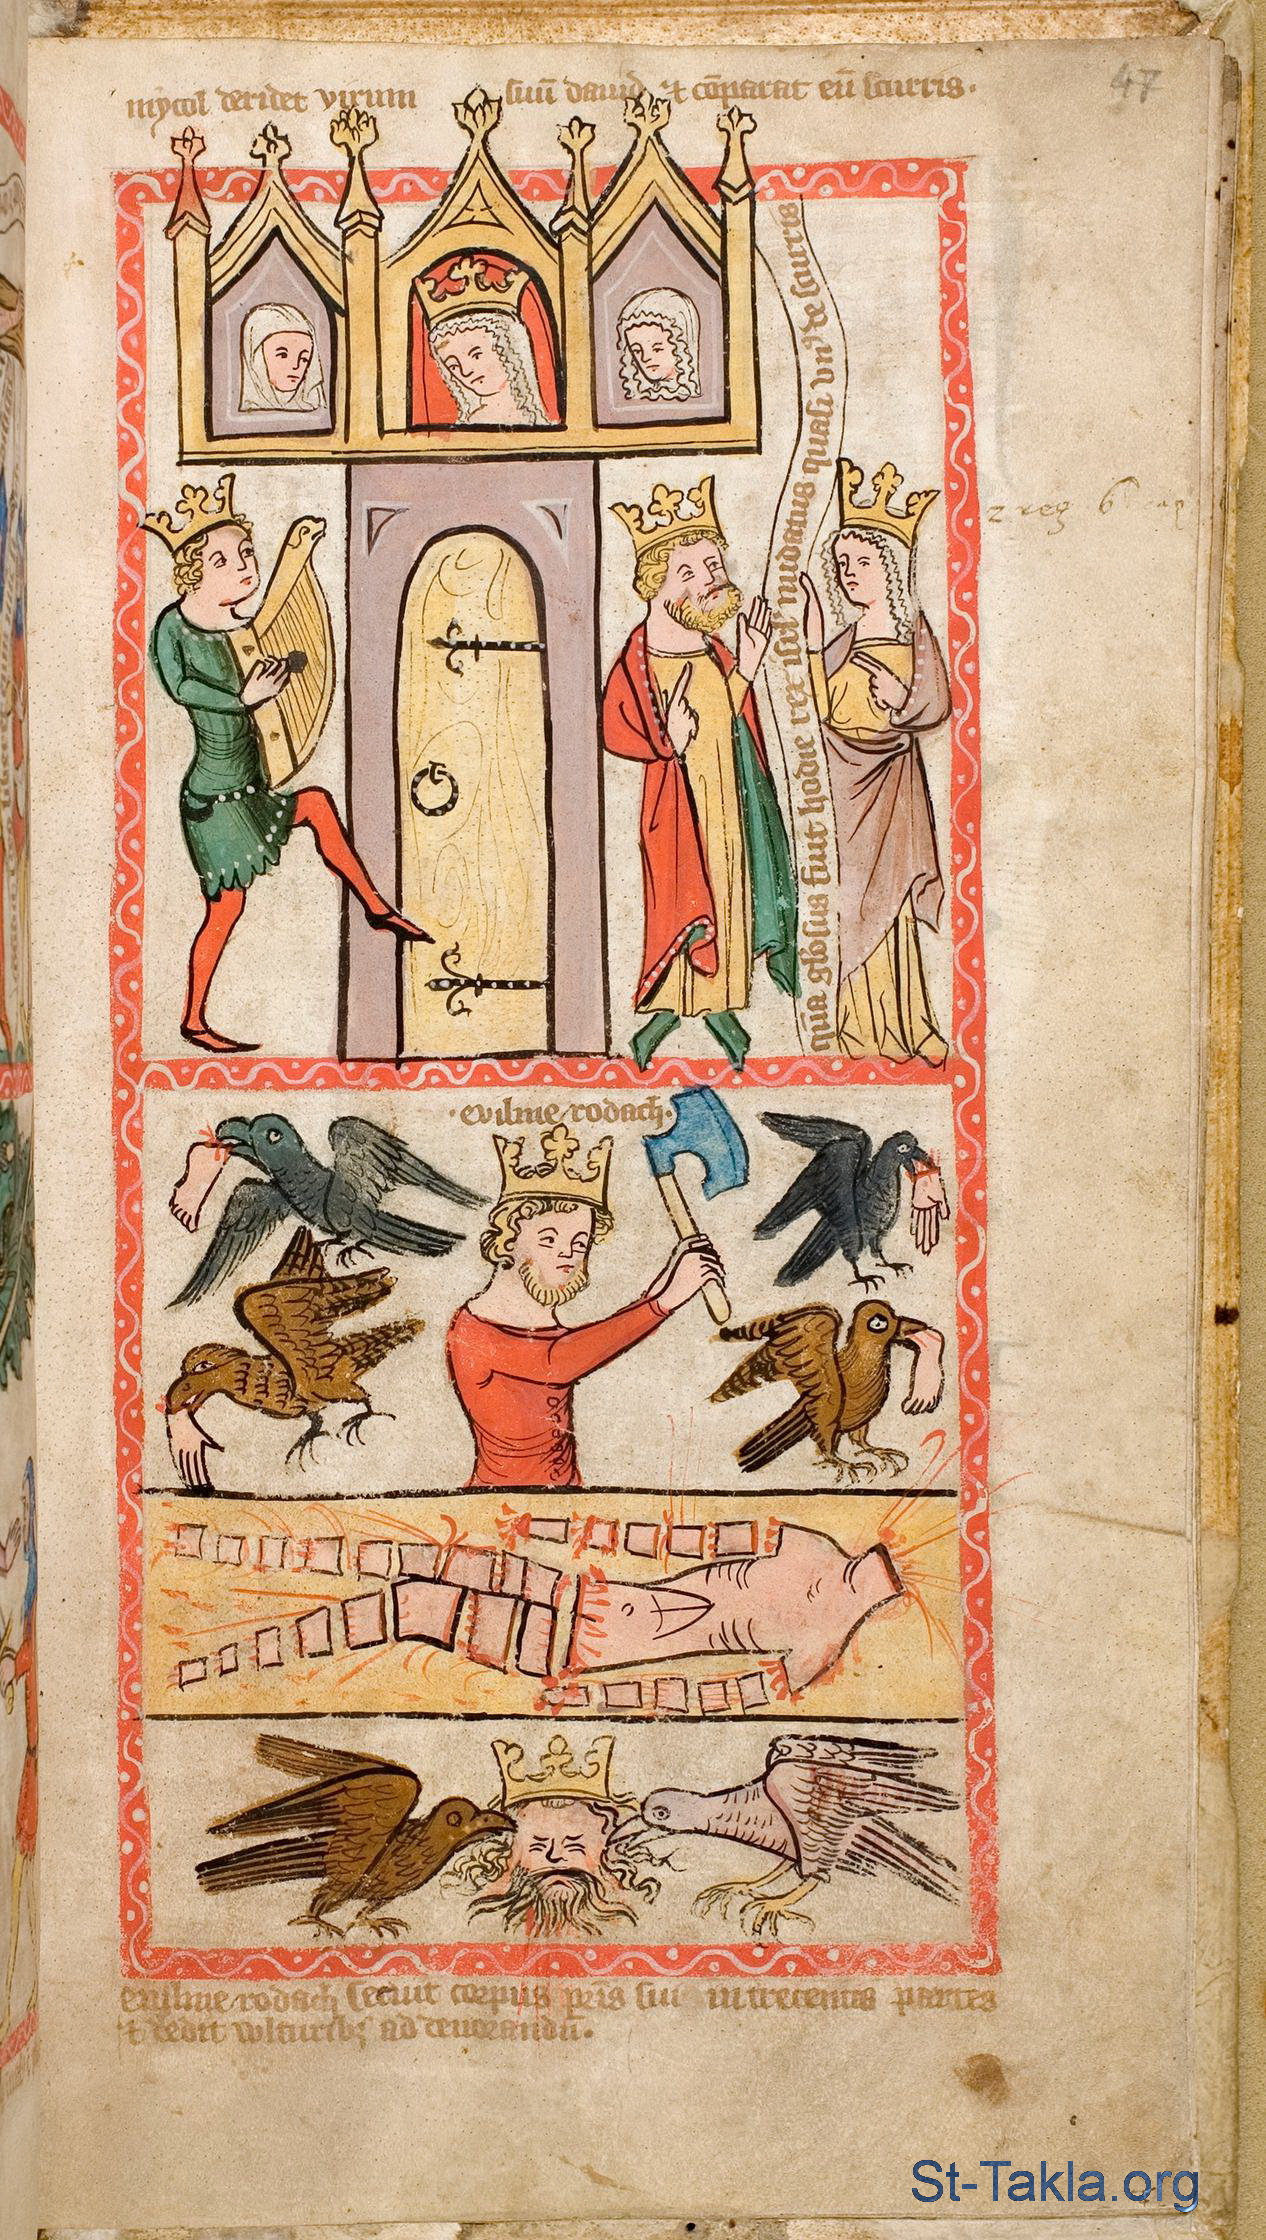 47
mycol deridet virum suū dauid ⁊ cōparat eū scurris.
qͣm gl̄osus fuit hodie rex isrl̄ nudatus quasi vn͛ de scurris
2 reg 6 cap
·euilme rodach·
euilme rodach secuit corpus pr̄is sui in trecentas partes
⁊ dedit volturibꝫ ad deuorandū.
St-Takla.org